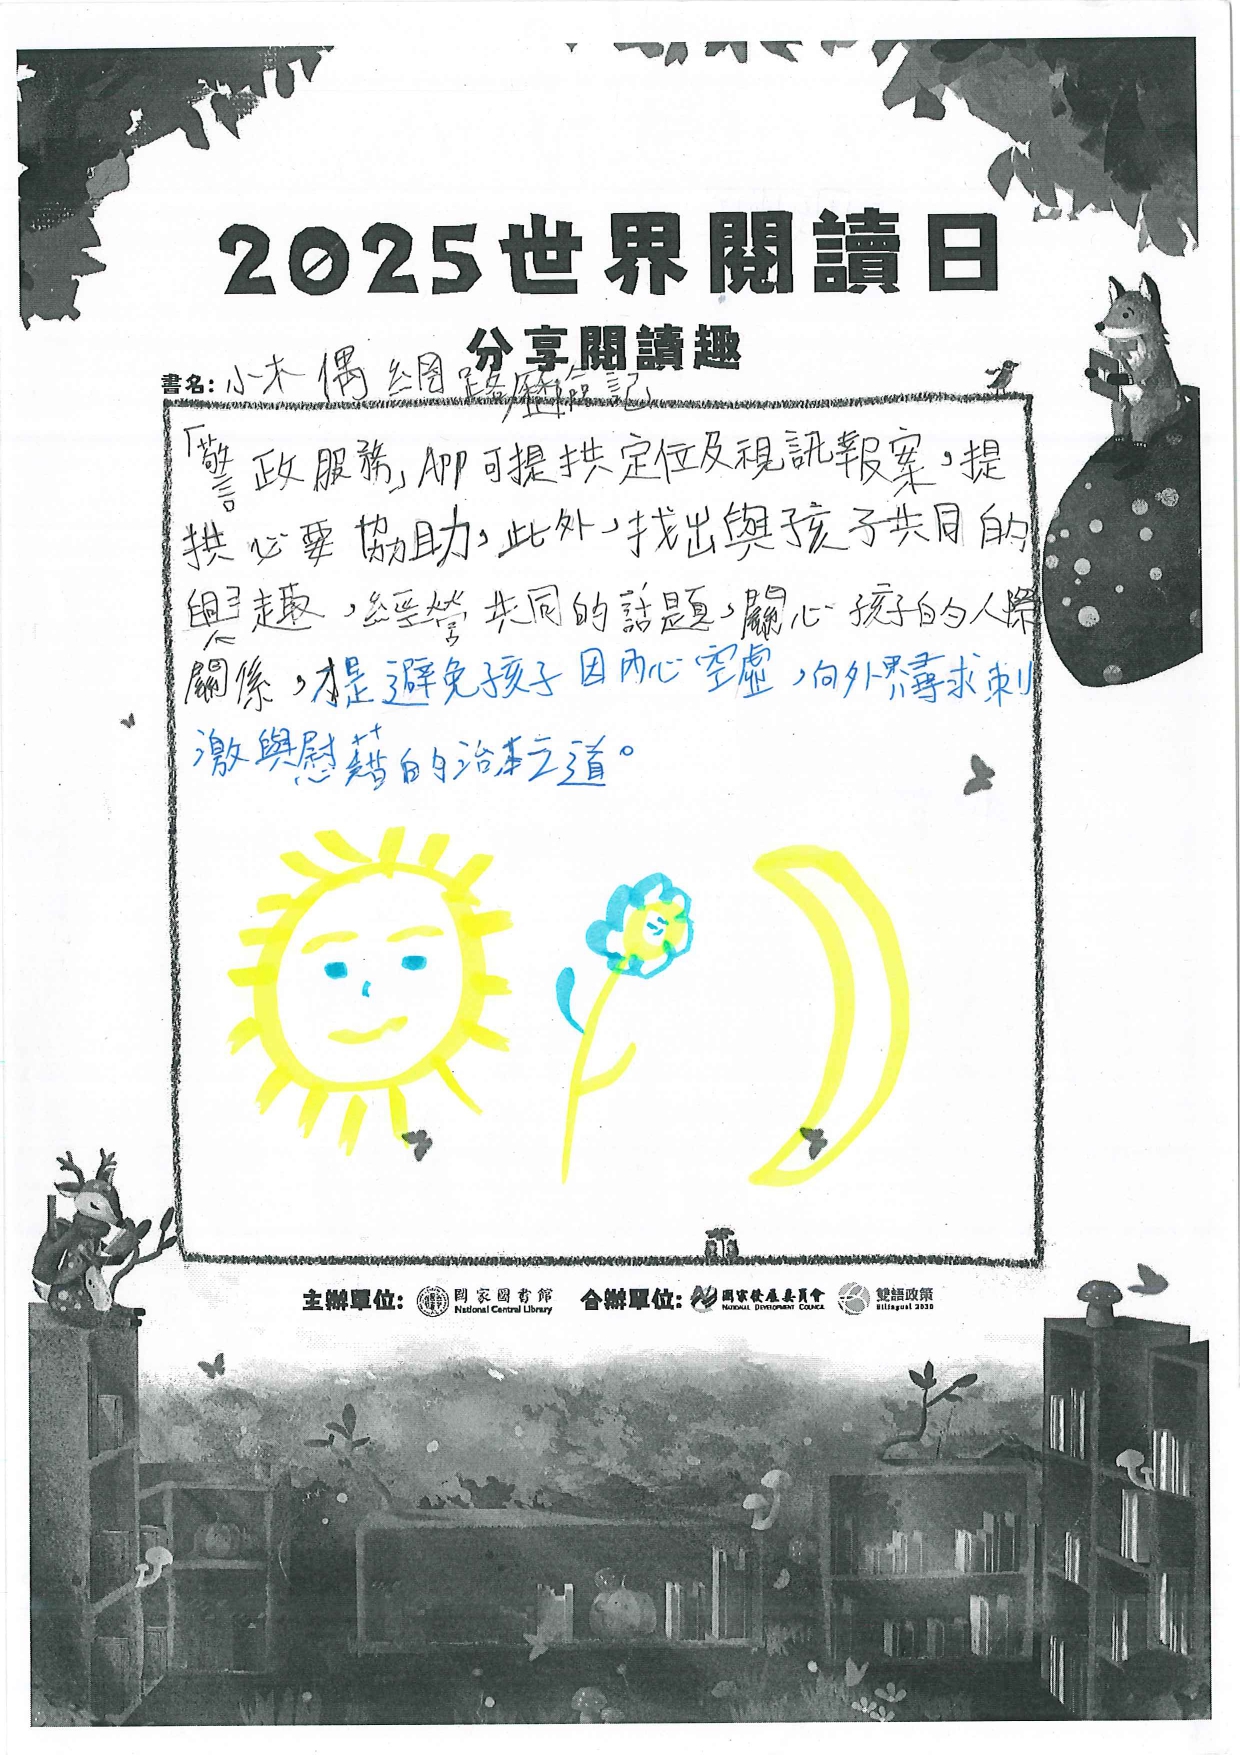 2025世界閱讀日
分享閱讀趣
書名：小木偶網路歷險記
「警政服務」APP可提拱定位及視訊報案，提
拱必要協助，此外，找出與孩子共同的
興趣，經營共同的話題，關心孩子的人際
關係，才是避免孩子因內心空虛，向外界尋求刺
激與慰藉的治本之道。
主辦單位：國家圖書館 National Central Library 合辦單位：國家發展委員會 National Development Council 雙語政策 Bilingual 2030